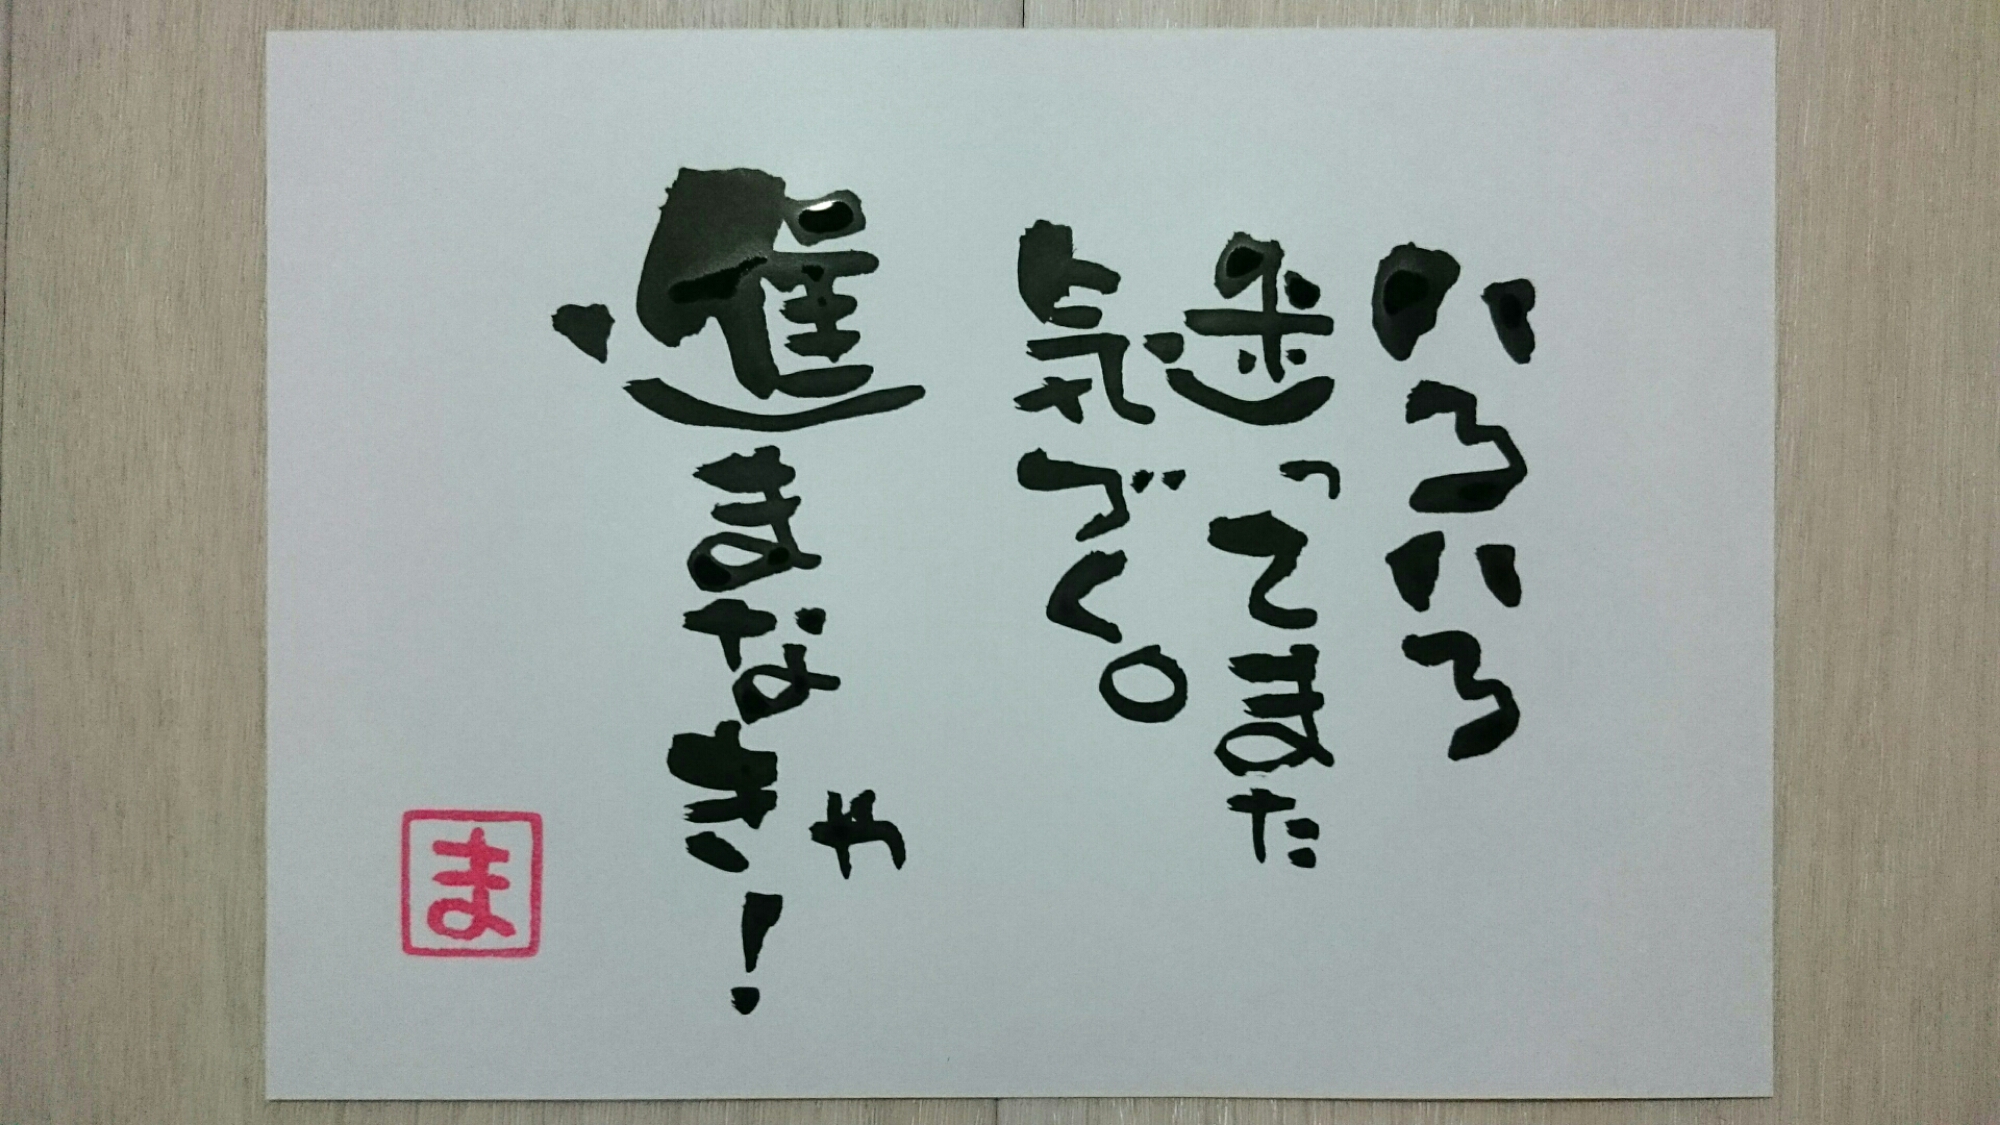 いろいろ
迷ってまた
気づく。
進まなきゃ!
ま